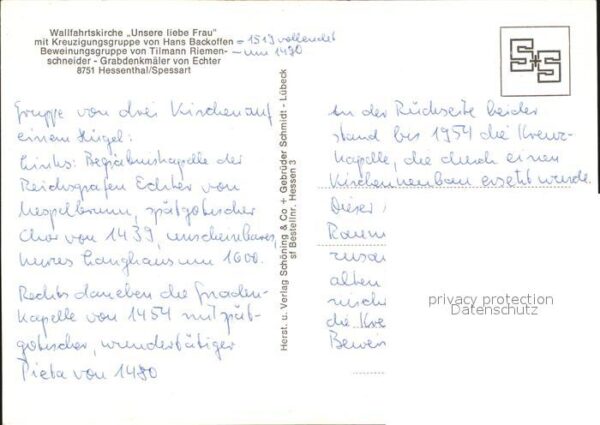 Wallfahrtskirche „Unsere liebe Frau"
mit Kreuzigungsgruppe von Hans Backoffen = 1519 vollendet
Beweinungsgruppe von Tilmann Riemen- - um 1490
schneider - Grabdenkmäler von Echter
8751 Hessenthal/Spessart
Gruppe von drei Kirchen auf
einem Hügel:
Links: Begräbniskapelle der
Reichsgrafen Echter von
Mespelbrunn, spätgotischer
Chor von 1439, unscheinbares,
neueres Langhaus um 1600.
Rechts daneben die Gnaden-
kapelle von 1454 mit spät-
gotischer, wundertätiger
Pieta von 1480
Herst. u. Verlag Schöning & Co + Gebrüder Schmidt - Lübeck
sf Bestellnr. Hessen 3
S+S
In der Rückseite beider
stand bis 1954 die Kreuz-
kapelle, die durch einen
Kirchenneubau ersetzt wurde.
Dieser
Raum
zusa
alten
die Kre
Bewei
privacy protection
Datenschutz